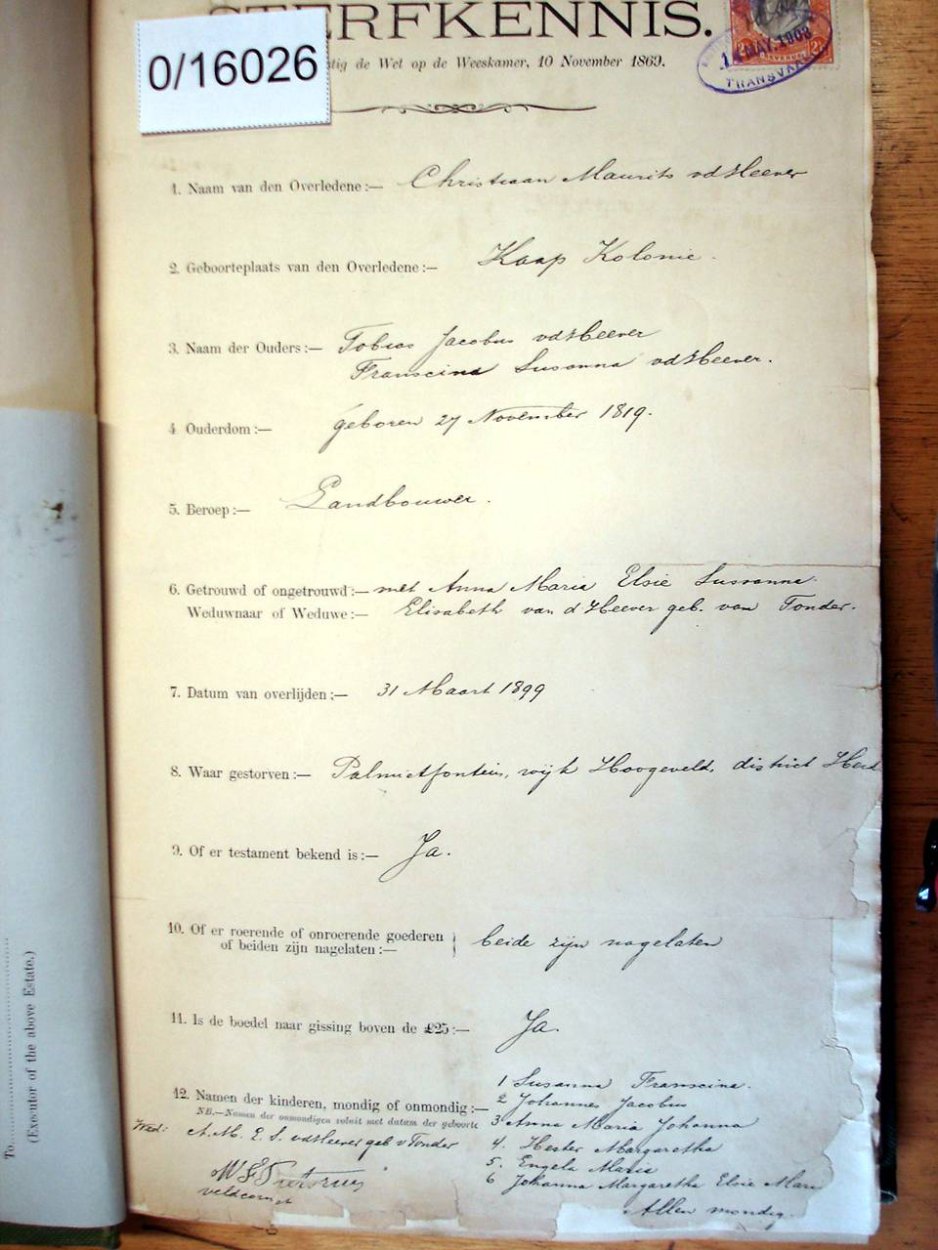 STERFKENNIS.
0/16026
tig de Wet op de Weeskamer, 10 November 1869.
14 MAY 1903
TRANSVAAL
1. Naam van den Overledene:— Christiaan Maurits vdHeever
2. Geboorteplaats van den Overledene:— Kaap Kolonie.
3. Naam der Ouders:— Tobias Jacobus vdHeever
Franscina Susanna vdHeever.
4. Ouderdom:— geboren 27 November 1819.
5. Beroep:— Landbouwer.
6. Getrouwd of ongetrouwd:— met Anna Maria Elsie Sussanna
Weduwnaar of Weduwe:— Elisabeth van d Heever geb. van Tonder.
7. Datum van overlijden:— 31 Maart 1899
8. Waar gestorven:— Palmietfontein, wijk Hoogeveld, district
9. Of er testament bekend is:— Ja.
10. Of er roerende of onroerende goederen
of beiden zijn nagelaten:— beide zijn nagelaten
11. Is de boedel naar gissing boven de £25:— Ja.
12. Namen der kinderen, mondig of onmondig:— 1 Susanna Franscina.
2 Johannes Jacobus
NB.—Namen der onmondigen voluit met datum der geboorte
3 Anna Maria Johanna
4. Hester Margaretha
5. Engela Maria
6 Johanna Margaretha Elsie Mari
Allen mondig.
A. M. E. S. vdHeever geb v Tonder
Pretorius
veldcornet
To
(Executor of the above Estate.)